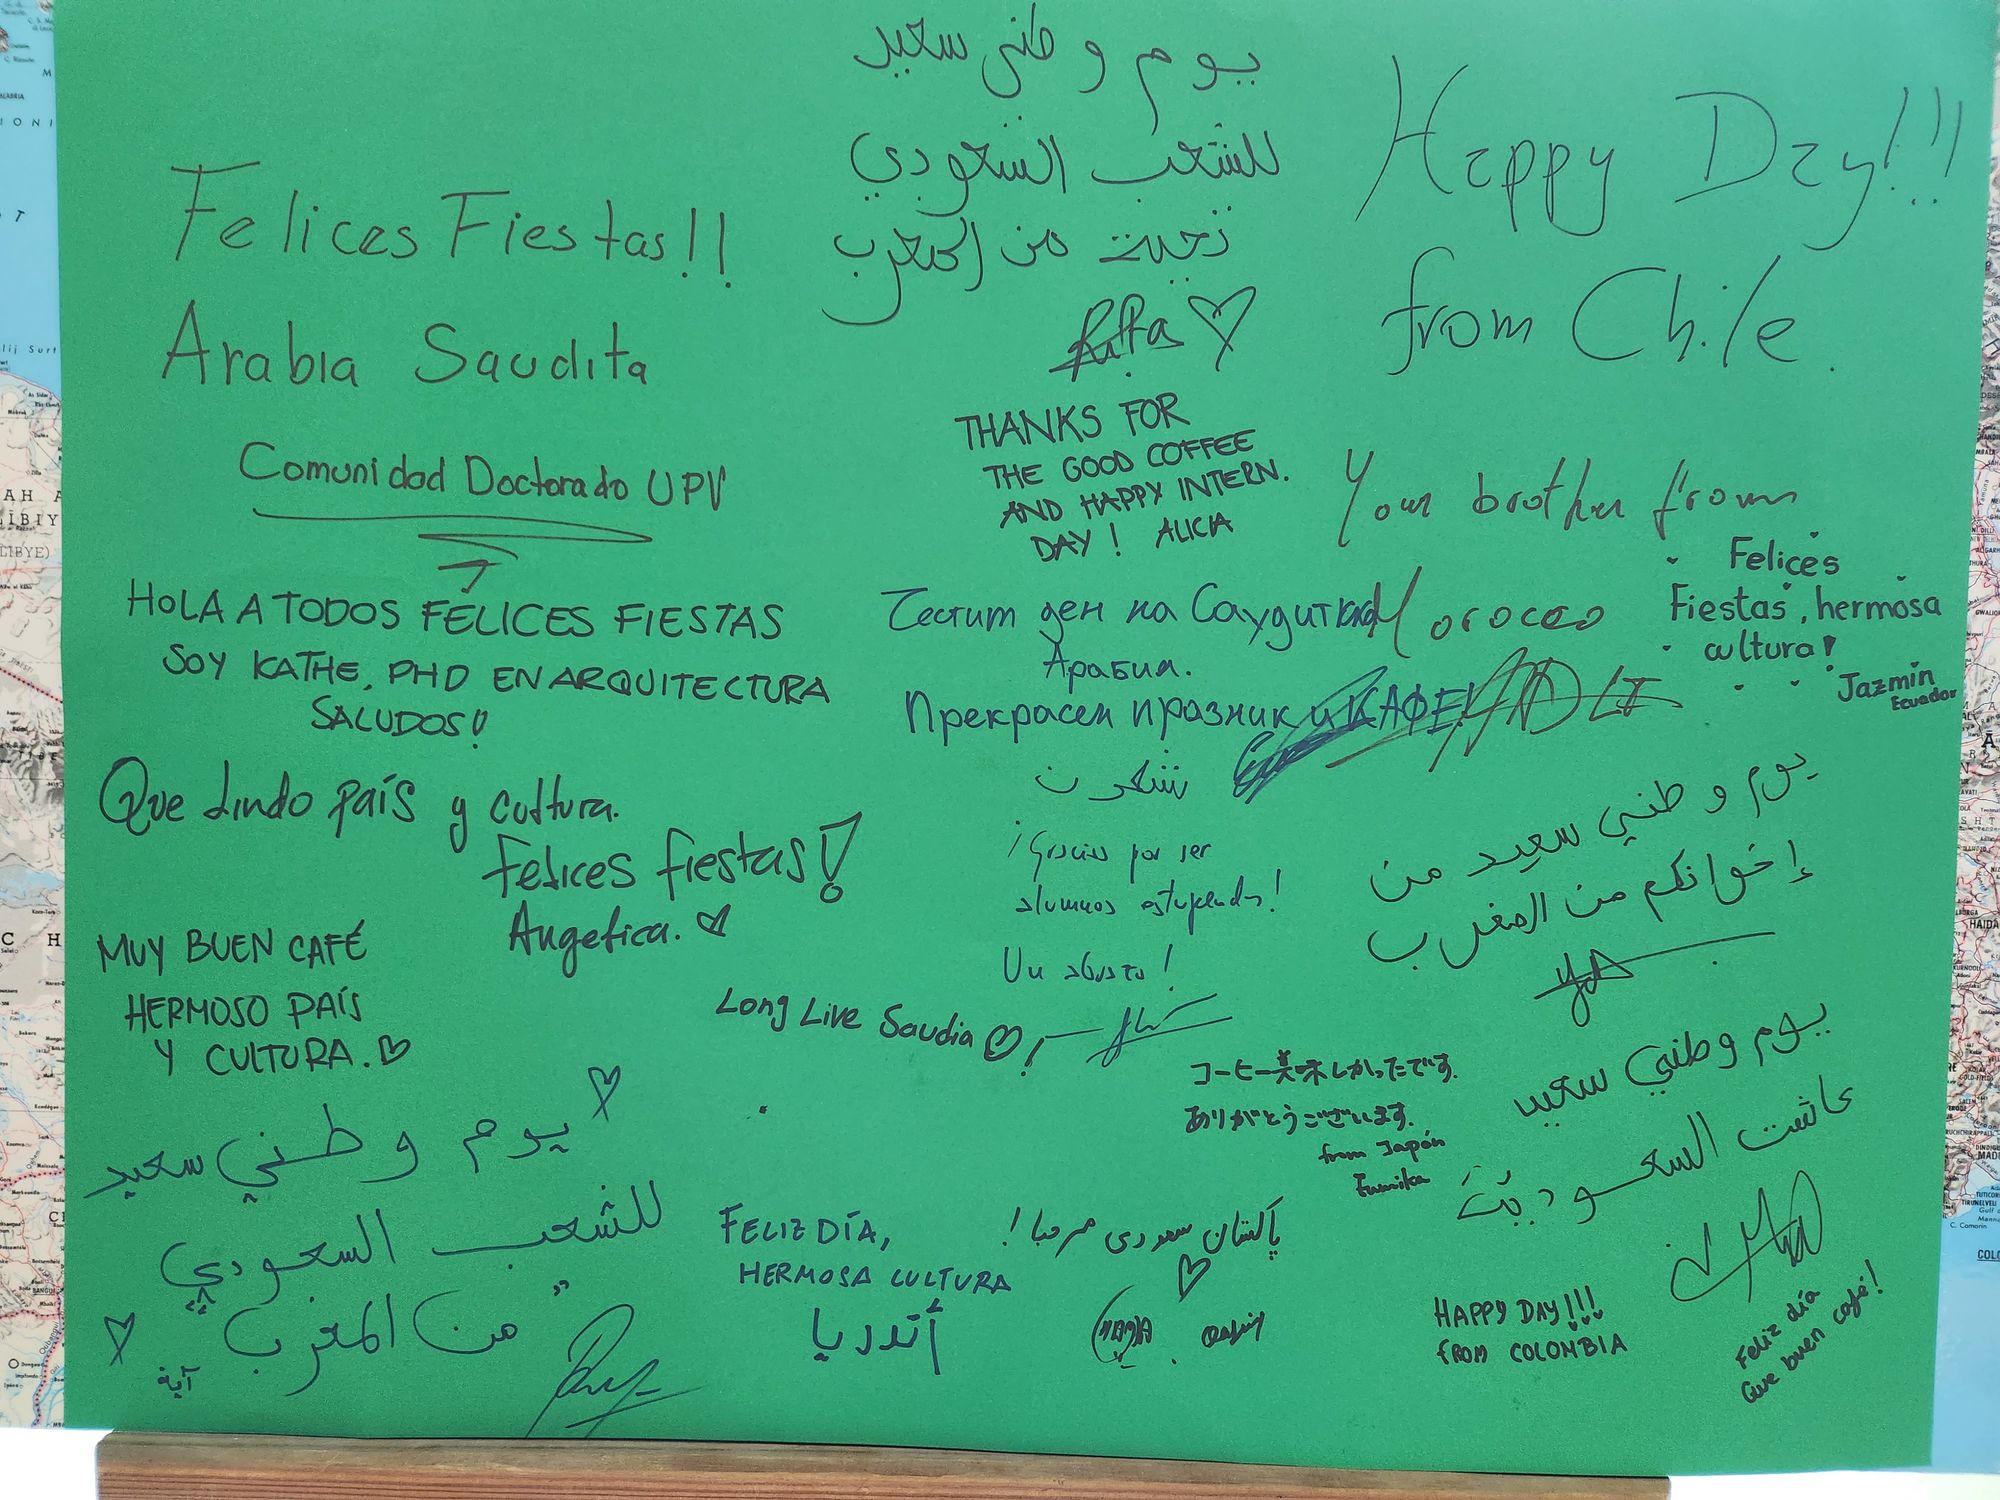 Felices Fiestas!!
Arabia Saudita
Comunidad Doctorado UPV
HOLA A TODOS FELICES FIESTAS
SOY KATHE, PHD EN ARQUITECTURA
SALUDOS!
Que Lindo país y cultura.
Felices fiestas!
Angelica.
MUY BUEN CAFÉ
HERMOSO PAÍS
Y CULTURA.
يوم وطني سعيد
للشعب السعودي
من المغرب
آية
يوم وطني سعيد
للشعب السعودي
تحيت من المغرب
THANKS FOR
THE GOOD COFFEE
AND HAPPY INTERN.
DAY! ALICIA
Честит ден на Саудитска
Арабия.
Прекрасен празник и КАФЕ!
¡Gracias por ser
alumnos estupendos!
Un abrazo!
Long Live Saudia
FELIZ DÍA,
HERMOSA CULTURA
أندريا
پاکستان سعودی مرحبا!
コーヒー美味しかったです。
ありがとうございます。
from Japón
Fumika
Happy Day!!!
from Chile.
Your brother from
Morocco
Felices
Fiestas, hermosa
cultura!
Jazmín
Ecuador
يوم وطني سعيد من
إخوانكم من المغرب
يوم وطني سعيد
عاشت السعودية
HAPPY DAY!!!
FROM COLOMBIA
Feliz día
Que buen café!